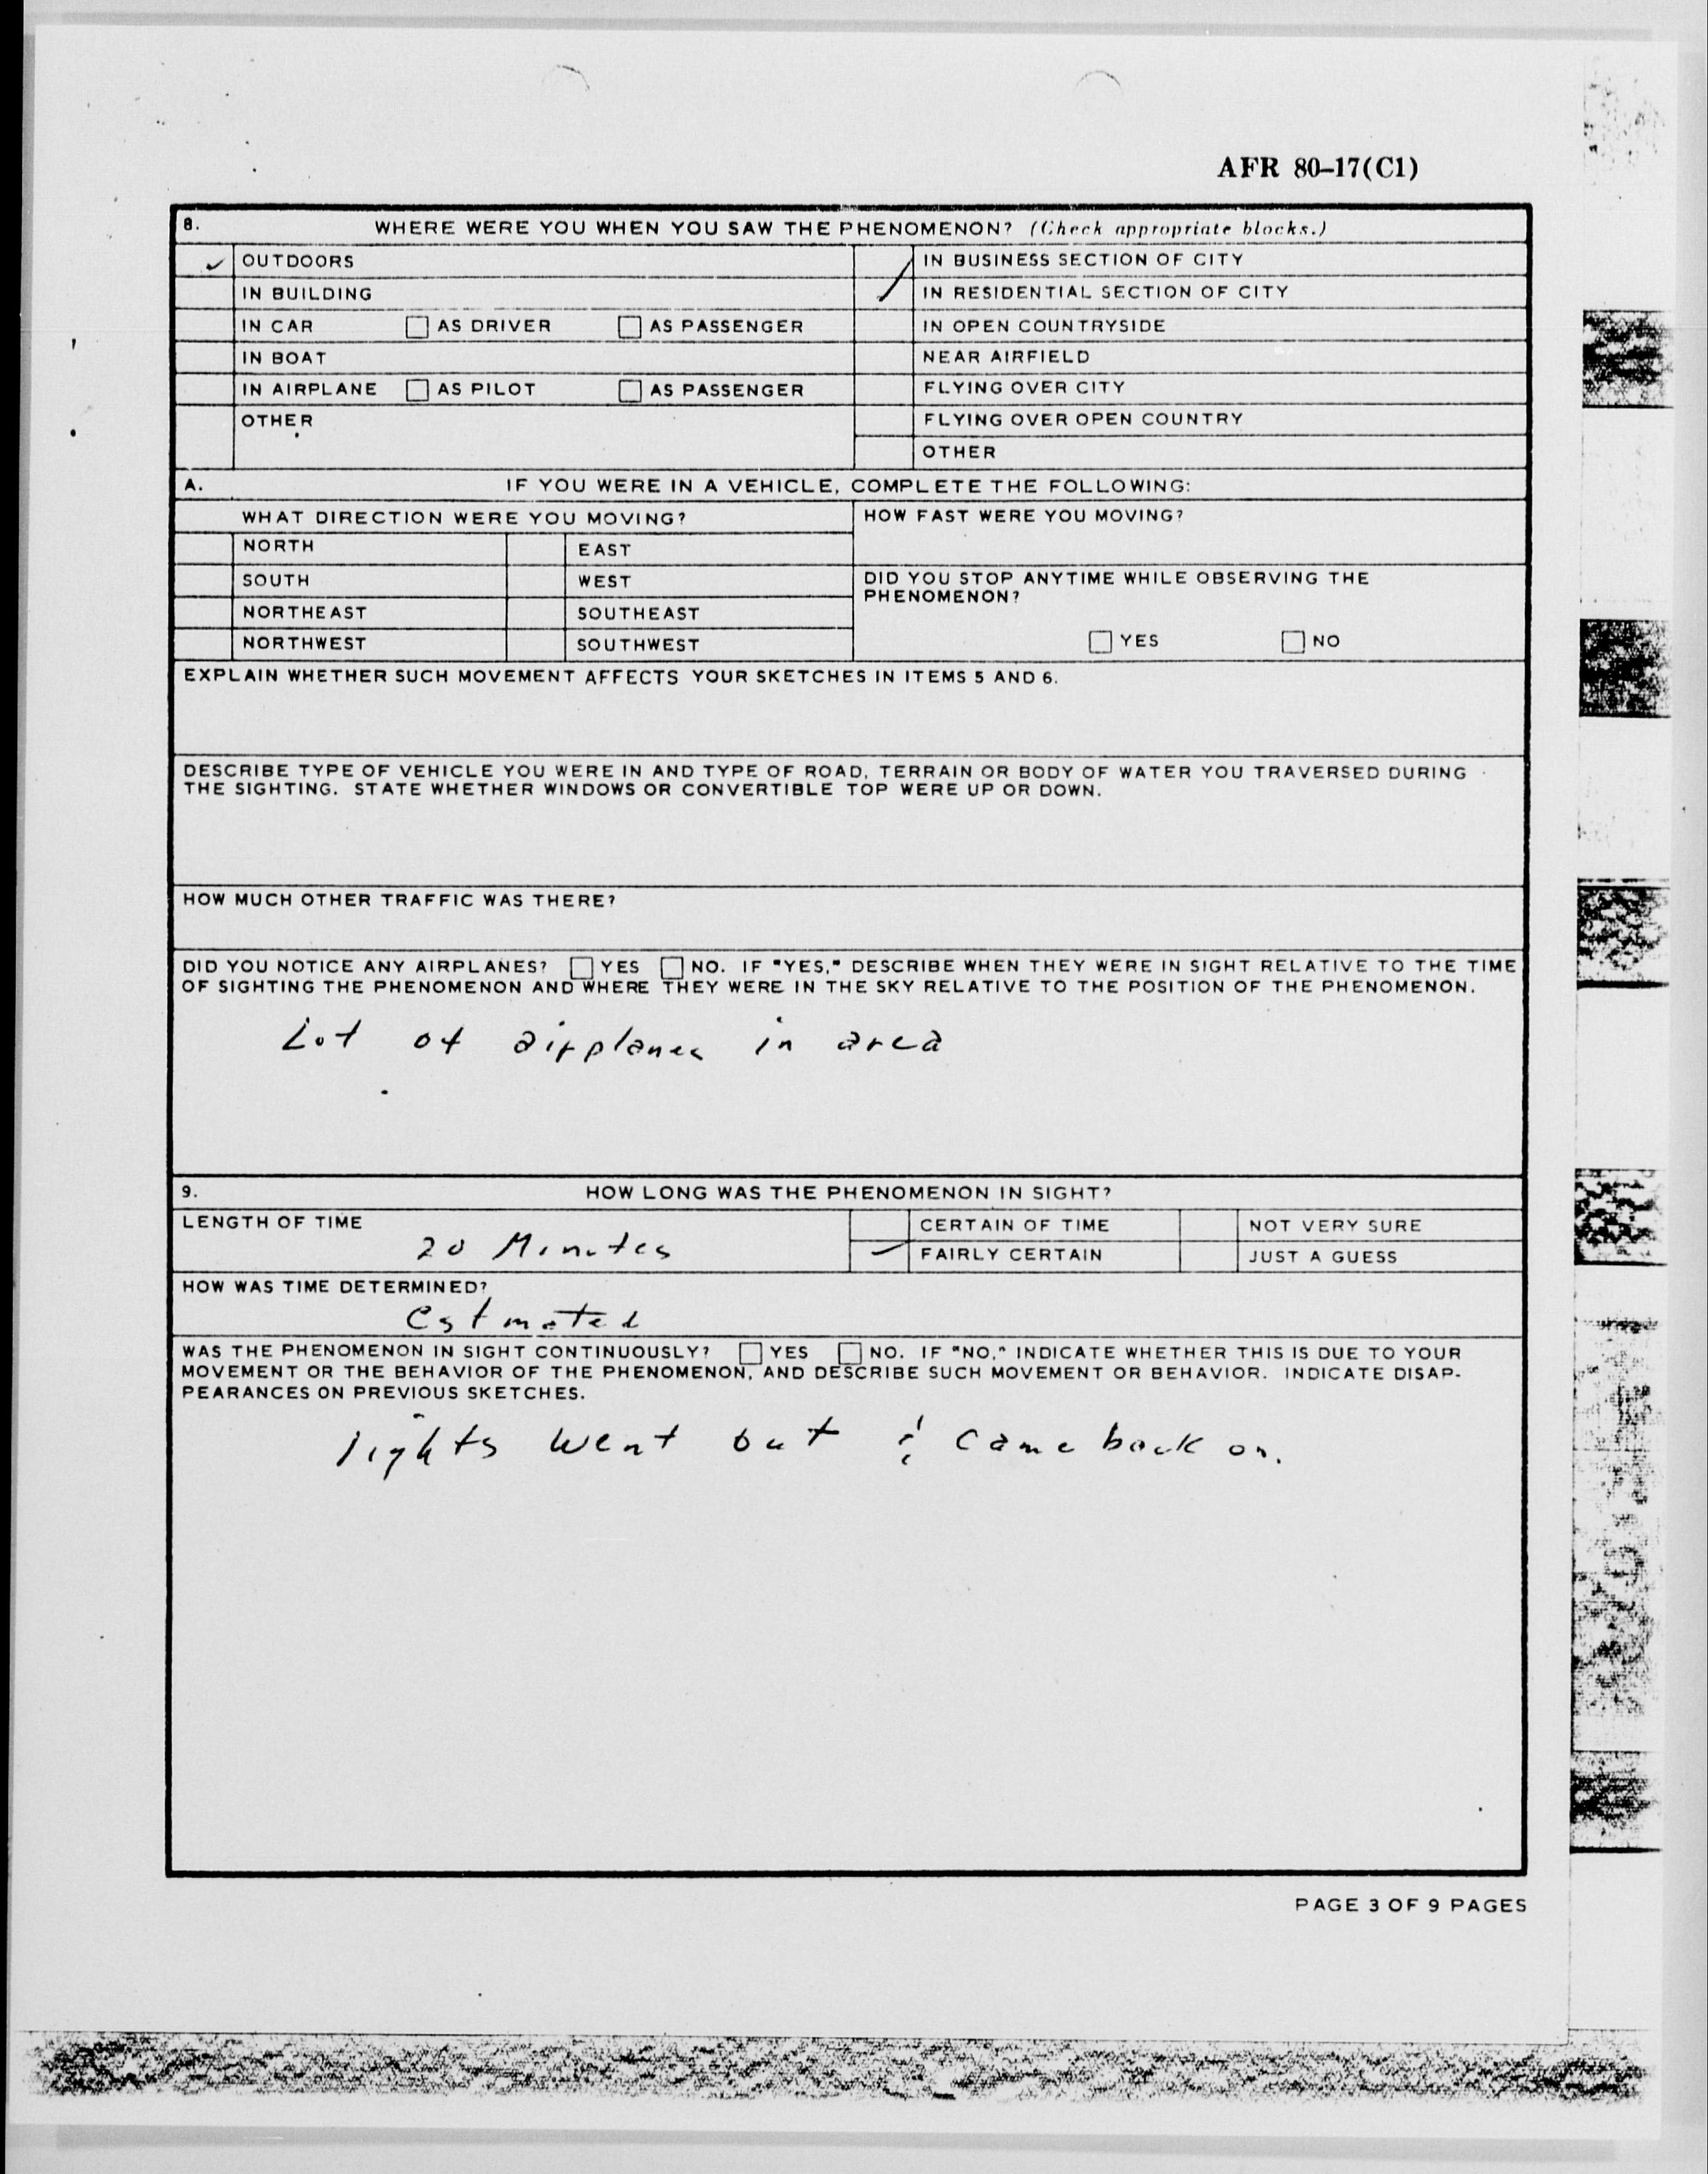 AFR 80–17(C1)
8. WHERE WERE YOU WHEN YOU SAW THE PHENOMENON? (Check appropriate blocks.)
✓ OUTDOORS
IN BUILDING
IN CAR ☐ AS DRIVER ☐ AS PASSENGER
IN BOAT
IN AIRPLANE ☐ AS PILOT ☐ AS PASSENGER
OTHER
IN BUSINESS SECTION OF CITY
✓ IN RESIDENTIAL SECTION OF CITY
IN OPEN COUNTRYSIDE
NEAR AIRFIELD
FLYING OVER CITY
FLYING OVER OPEN COUNTRY
OTHER
A. IF YOU WERE IN A VEHICLE, COMPLETE THE FOLLOWING:
WHAT DIRECTION WERE YOU MOVING?
NORTH EAST
SOUTH WEST
NORTHEAST SOUTHEAST
NORTHWEST SOUTHWEST
HOW FAST WERE YOU MOVING?
DID YOU STOP ANYTIME WHILE OBSERVING THE
PHENOMENON?
☐ YES ☐ NO
EXPLAIN WHETHER SUCH MOVEMENT AFFECTS YOUR SKETCHES IN ITEMS 5 AND 6.
DESCRIBE TYPE OF VEHICLE YOU WERE IN AND TYPE OF ROAD, TERRAIN OR BODY OF WATER YOU TRAVERSED DURING
THE SIGHTING. STATE WHETHER WINDOWS OR CONVERTIBLE TOP WERE UP OR DOWN.
HOW MUCH OTHER TRAFFIC WAS THERE?
DID YOU NOTICE ANY AIRPLANES? ☐ YES ☐ NO. IF "YES," DESCRIBE WHEN THEY WERE IN SIGHT RELATIVE TO THE TIME
OF SIGHTING THE PHENOMENON AND WHERE THEY WERE IN THE SKY RELATIVE TO THE POSITION OF THE PHENOMENON.
Lot of airplanes in area
9. HOW LONG WAS THE PHENOMENON IN SIGHT?
LENGTH OF TIME
20 Minutes
CERTAIN OF TIME NOT VERY SURE
✓ FAIRLY CERTAIN JUST A GUESS
HOW WAS TIME DETERMINED?
Estmated
WAS THE PHENOMENON IN SIGHT CONTINUOUSLY? ☐ YES ☐ NO. IF "NO," INDICATE WHETHER THIS IS DUE TO YOUR
MOVEMENT OR THE BEHAVIOR OF THE PHENOMENON, AND DESCRIBE SUCH MOVEMENT OR BEHAVIOR. INDICATE DISAP-
PEARANCES ON PREVIOUS SKETCHES.
lights went out & came back on.
PAGE 3 OF 9 PAGES